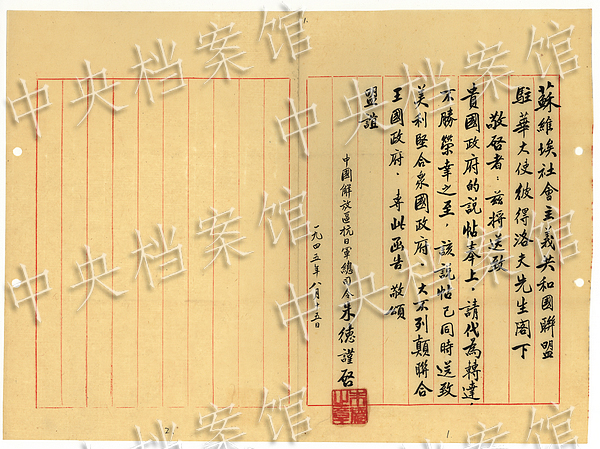 蘇維埃社會主義共和國聯盟
駐華大使彼得洛夫先生閣下
敬啓者：茲將送致
貴國政府的說帖奉上，請代為轉達，
不勝榮幸之至，該說帖已同時送致
美利堅合衆國政府，大不列顛聯合
王國政府，專此函告 敬頌
盟誼
中國解放區抗日軍總司令 朱德謹啓
一九四五年八月十五日
朱德之章
1
2
中央档案馆
中央档案馆
中央档案馆
中央档案馆